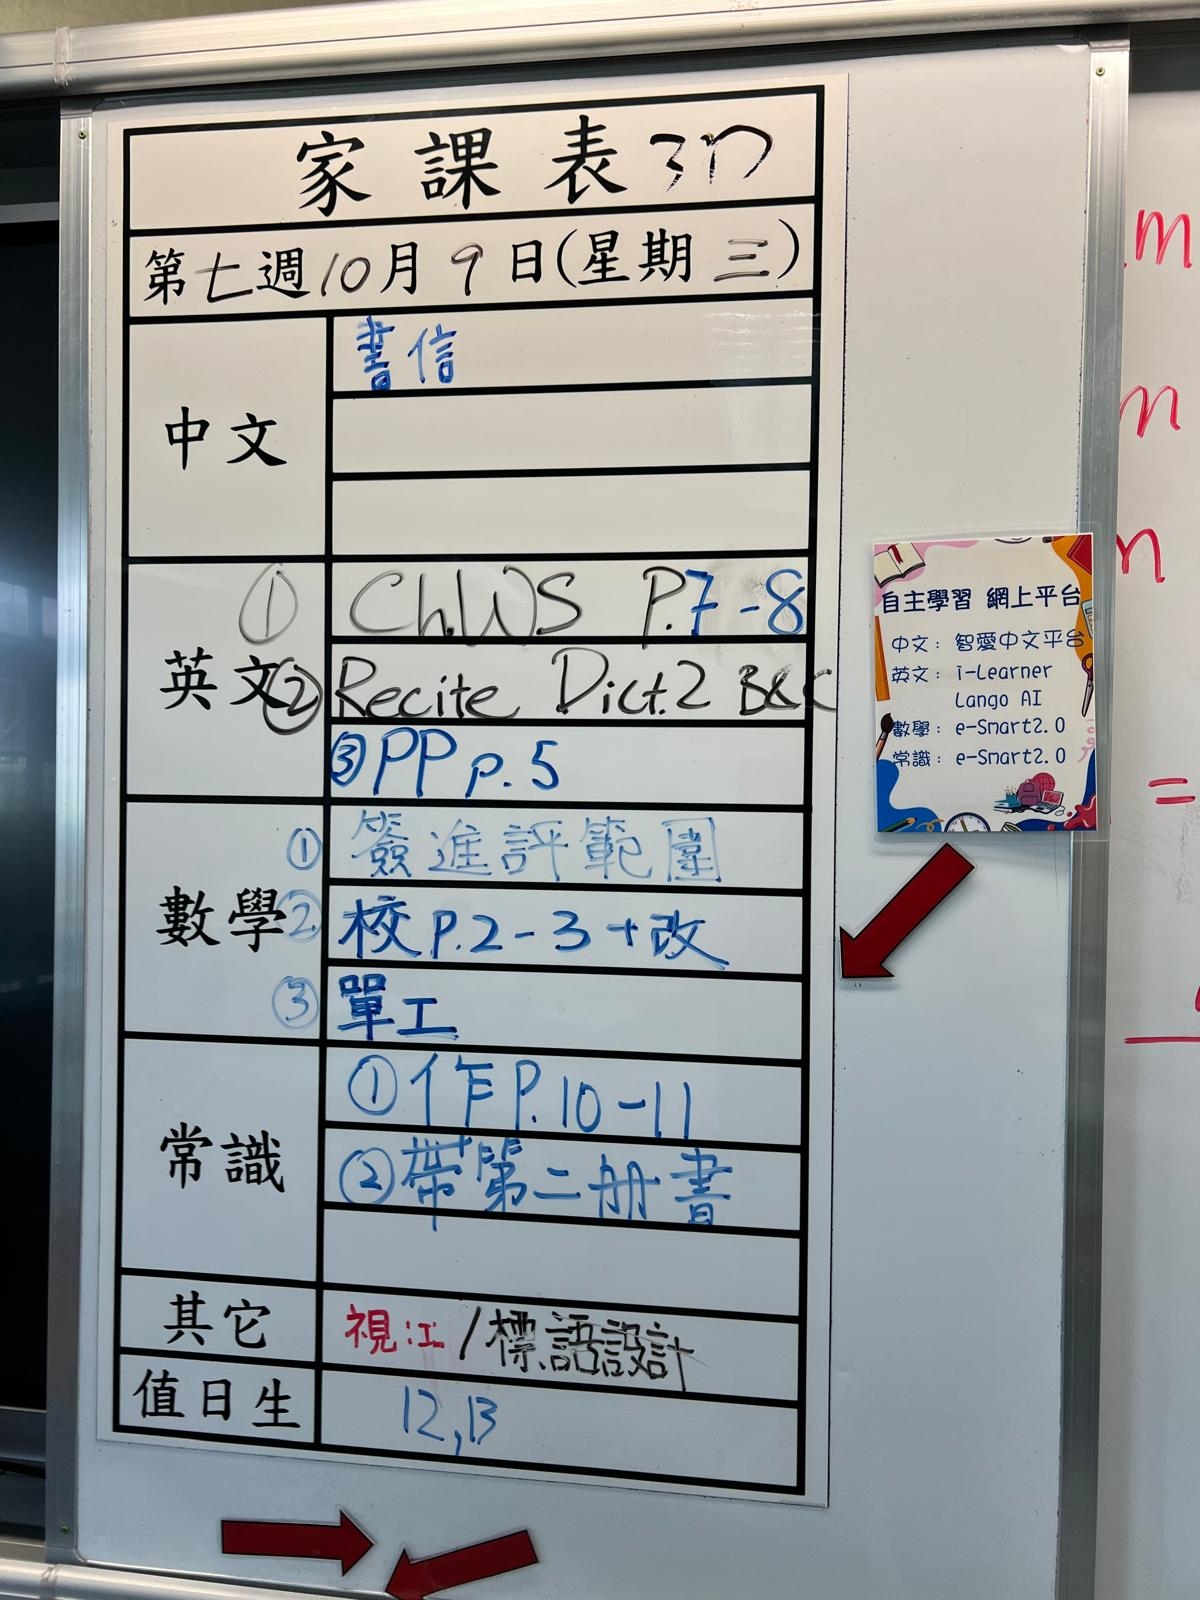 家課表
第七週10月9日(星期三)
中文
書信
英文
① Ch.WS P.7-8
② Recite Dict.2 B&C
③ PP p.5
數學
① 簽進評範圍
② 校P.2-3+改
③ 單工
常識
① 作P.10-11
② 帶第二冊書
其它
視工/標語設計
值日生
12,13
自主學習 網上平台
中文：智愛中文平台
英文：i-Learner
Lango AI
數學：e-Smart2.0
常識：e-Smart2.0
m
m
n
=